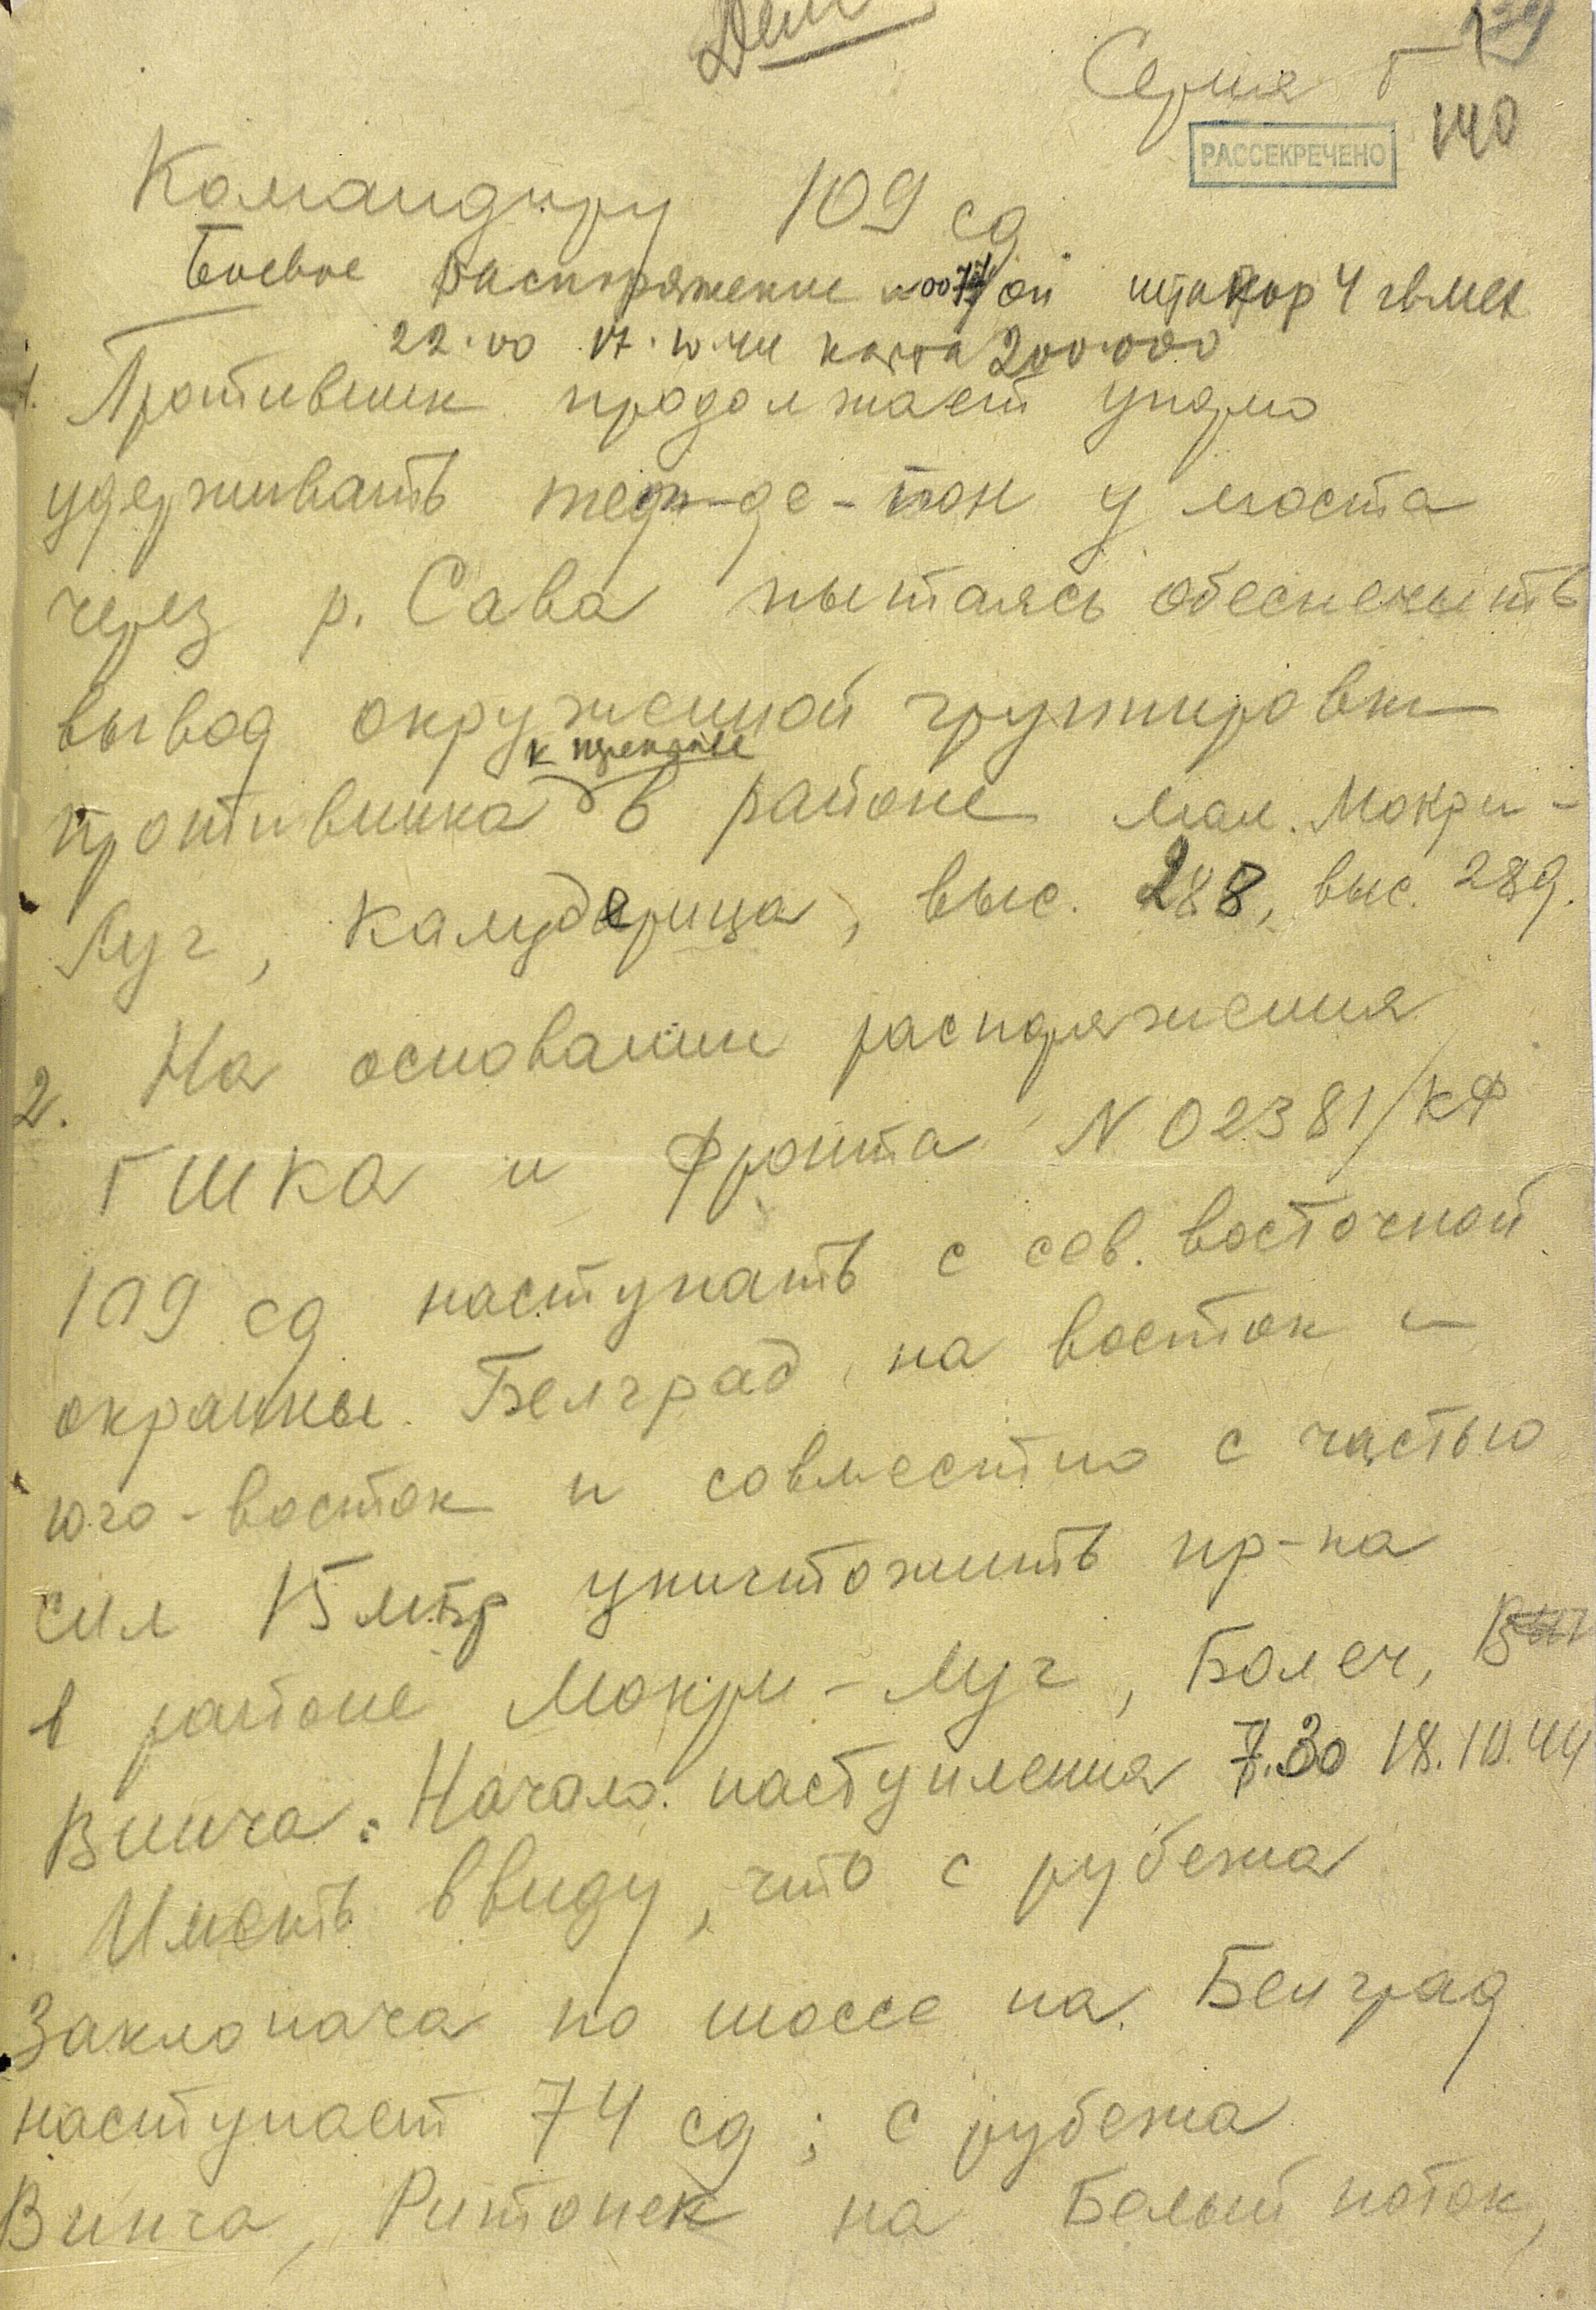 Дел
Серия Г
140
РАССЕКРЕЧЕНО
Командиру 109 сд
Боевое распоряжение оп штакор 4 гвмех
22.00 17.10.44 карта 200.000
1. Противник продолжает упорно
удерживать тет-де-пон у моста
через р. Сава пытаясь обеспечить
вывод окруженной группировки
к переправе
противника в районе мал. Мокри-
Луг, Калудерица, выс. 288, выс. 289.
2. На основании распоряжения
ГШКА и Фронта N 02381/кф
109 сд наступать с сев. восточной
окраины Белград на восток и
юго-восток и совместно с частью
сил 15 мбр уничтожить пр-ка
в районе Мокри-Луг, Болеч,
Винча. Начало наступления 7.30 18.10.44
Иметь ввиду, что с рубежа
Заклопача по шоссе на Белград
наступает 74 сд; с рубежа
Винча, Ритопек на Белый поток,